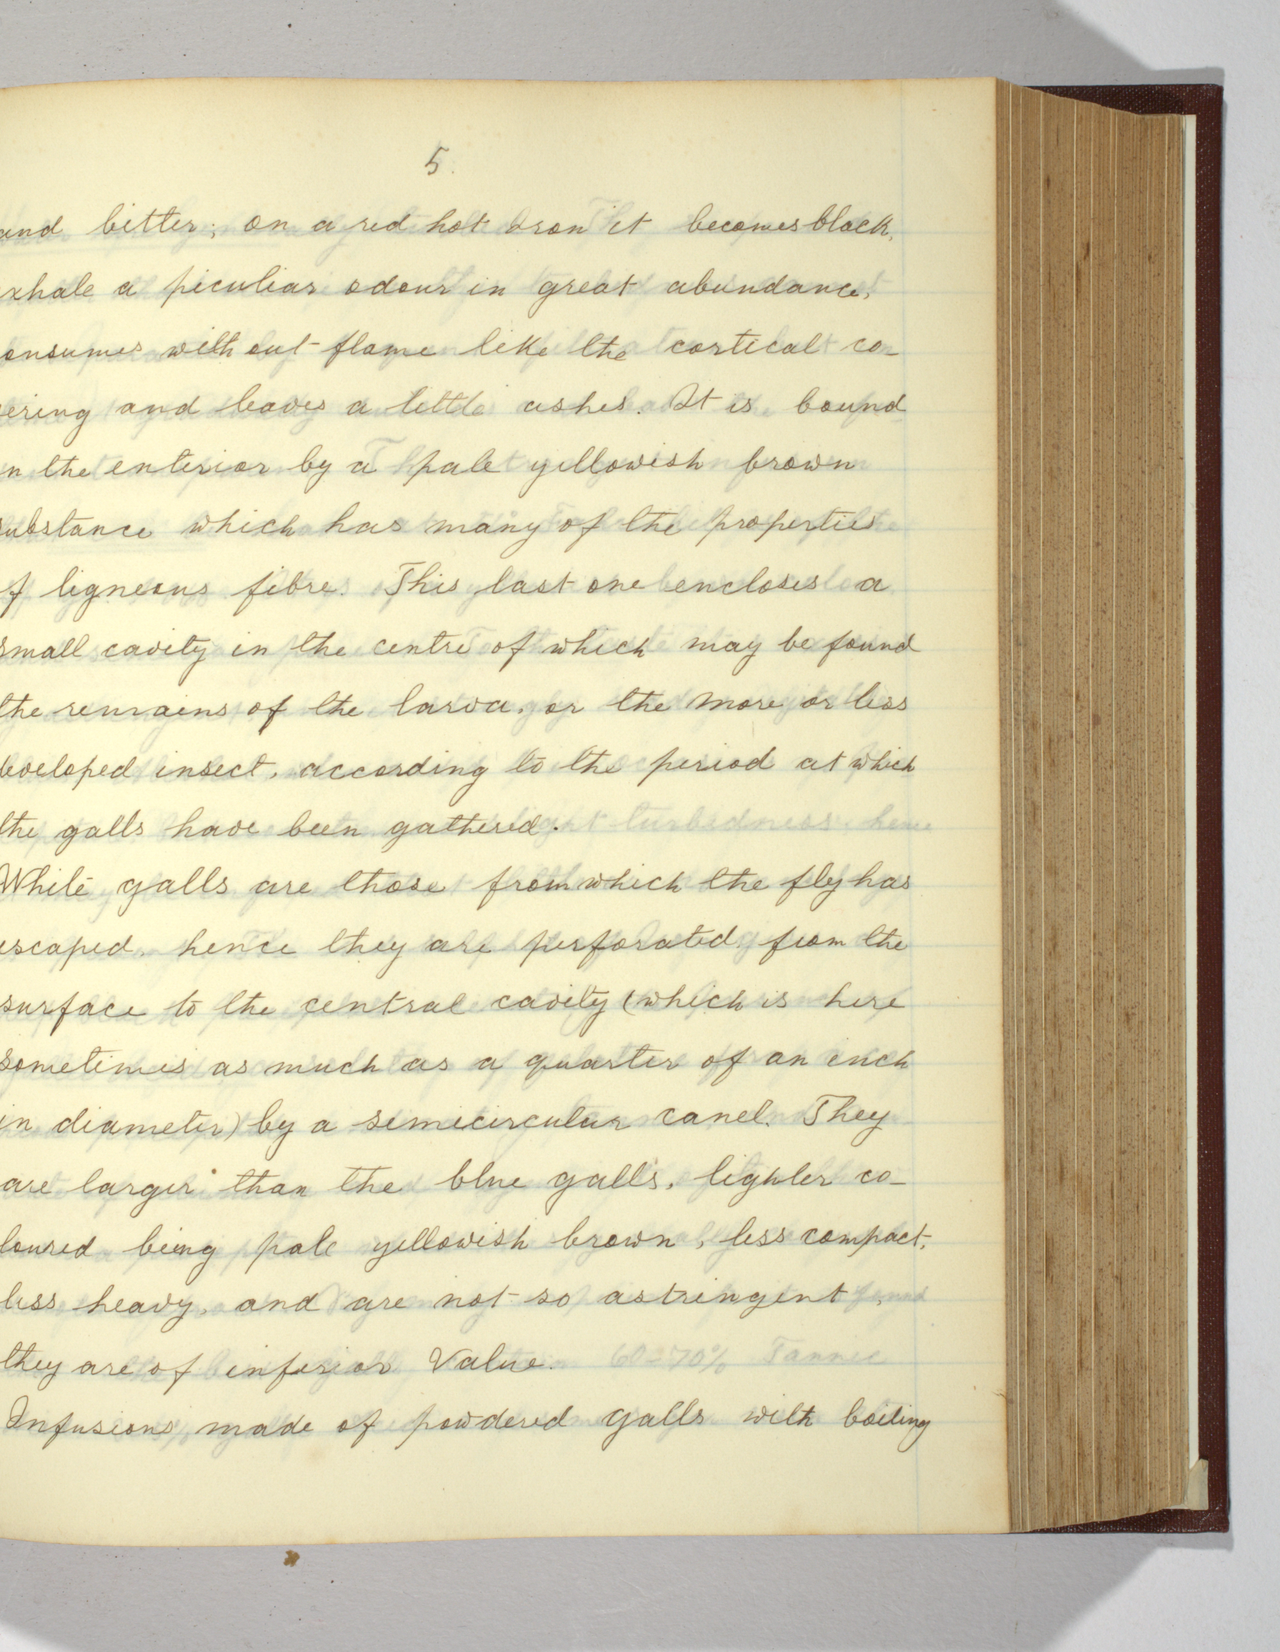 5.
and bitter; on a red hot iron it becomes black,
exhale a peculiar odour in great abundance,
onsumes without flame like the cortical co-
vering and leaves a little ashes. It is bound
in the enterior by a pale yellowish brown
substance which has many of the properties
of ligneous fibre. This last one encloses a
small cavity in the centre of which may be found
the remains of the larva, or the more or less
developed insect, according to the period at which
the galls have been gathered.
White galls are those from which the fly has
escaped, hence they are perforated from the
surface to the central cavity (which is here
sometimes as much as a quarter of an inch
in diameter) by a semicircular canel. They
are larger than the blue galls, lighter co-
loured being pale yellowish brown, less compact,
less heavy, and are not so astringent,
they are of inferior Value.
Infusions made of powdered galls with boiling